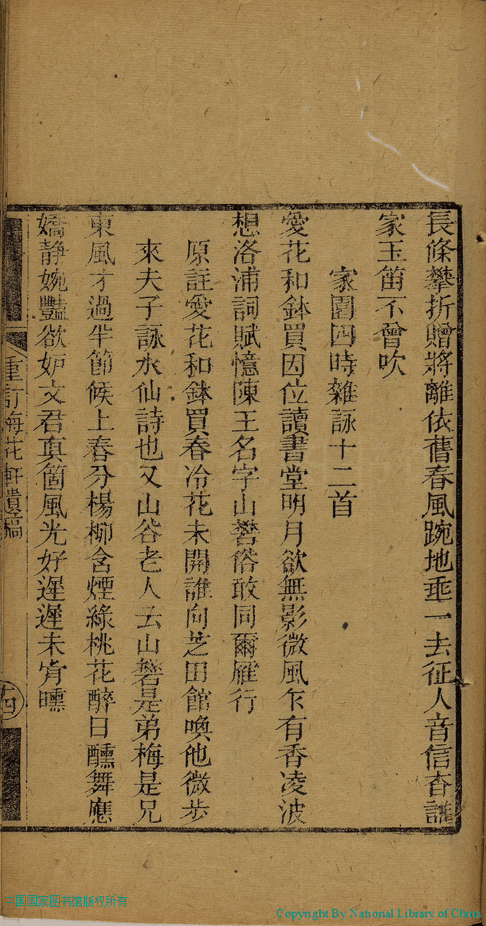 長條攀折贈將離依舊春風踠地垂一去征人音信杳誰
家玉笛不曾吹
家園四時雜詠十二首
愛花和鉢買因位讀書堂明月欲無影微風乍有香凌波
想洛浦詞賦憶陳王名字山礬俗敢同爾雁行
原註愛花和鉢買春冷花未開誰向芝田館喚他微步
來夫子詠水仙詩也又山谷老人云山礬是弟梅是兄
東風才過半節候上春分楊柳含煙綠桃花醉日醺舞應
嬌靜婉豔欲妒文君真箇風光好遲遲未肯曛
重訂梅花軒遺稿
四
中国国家图书馆版权所有
Copyright By National Library of China